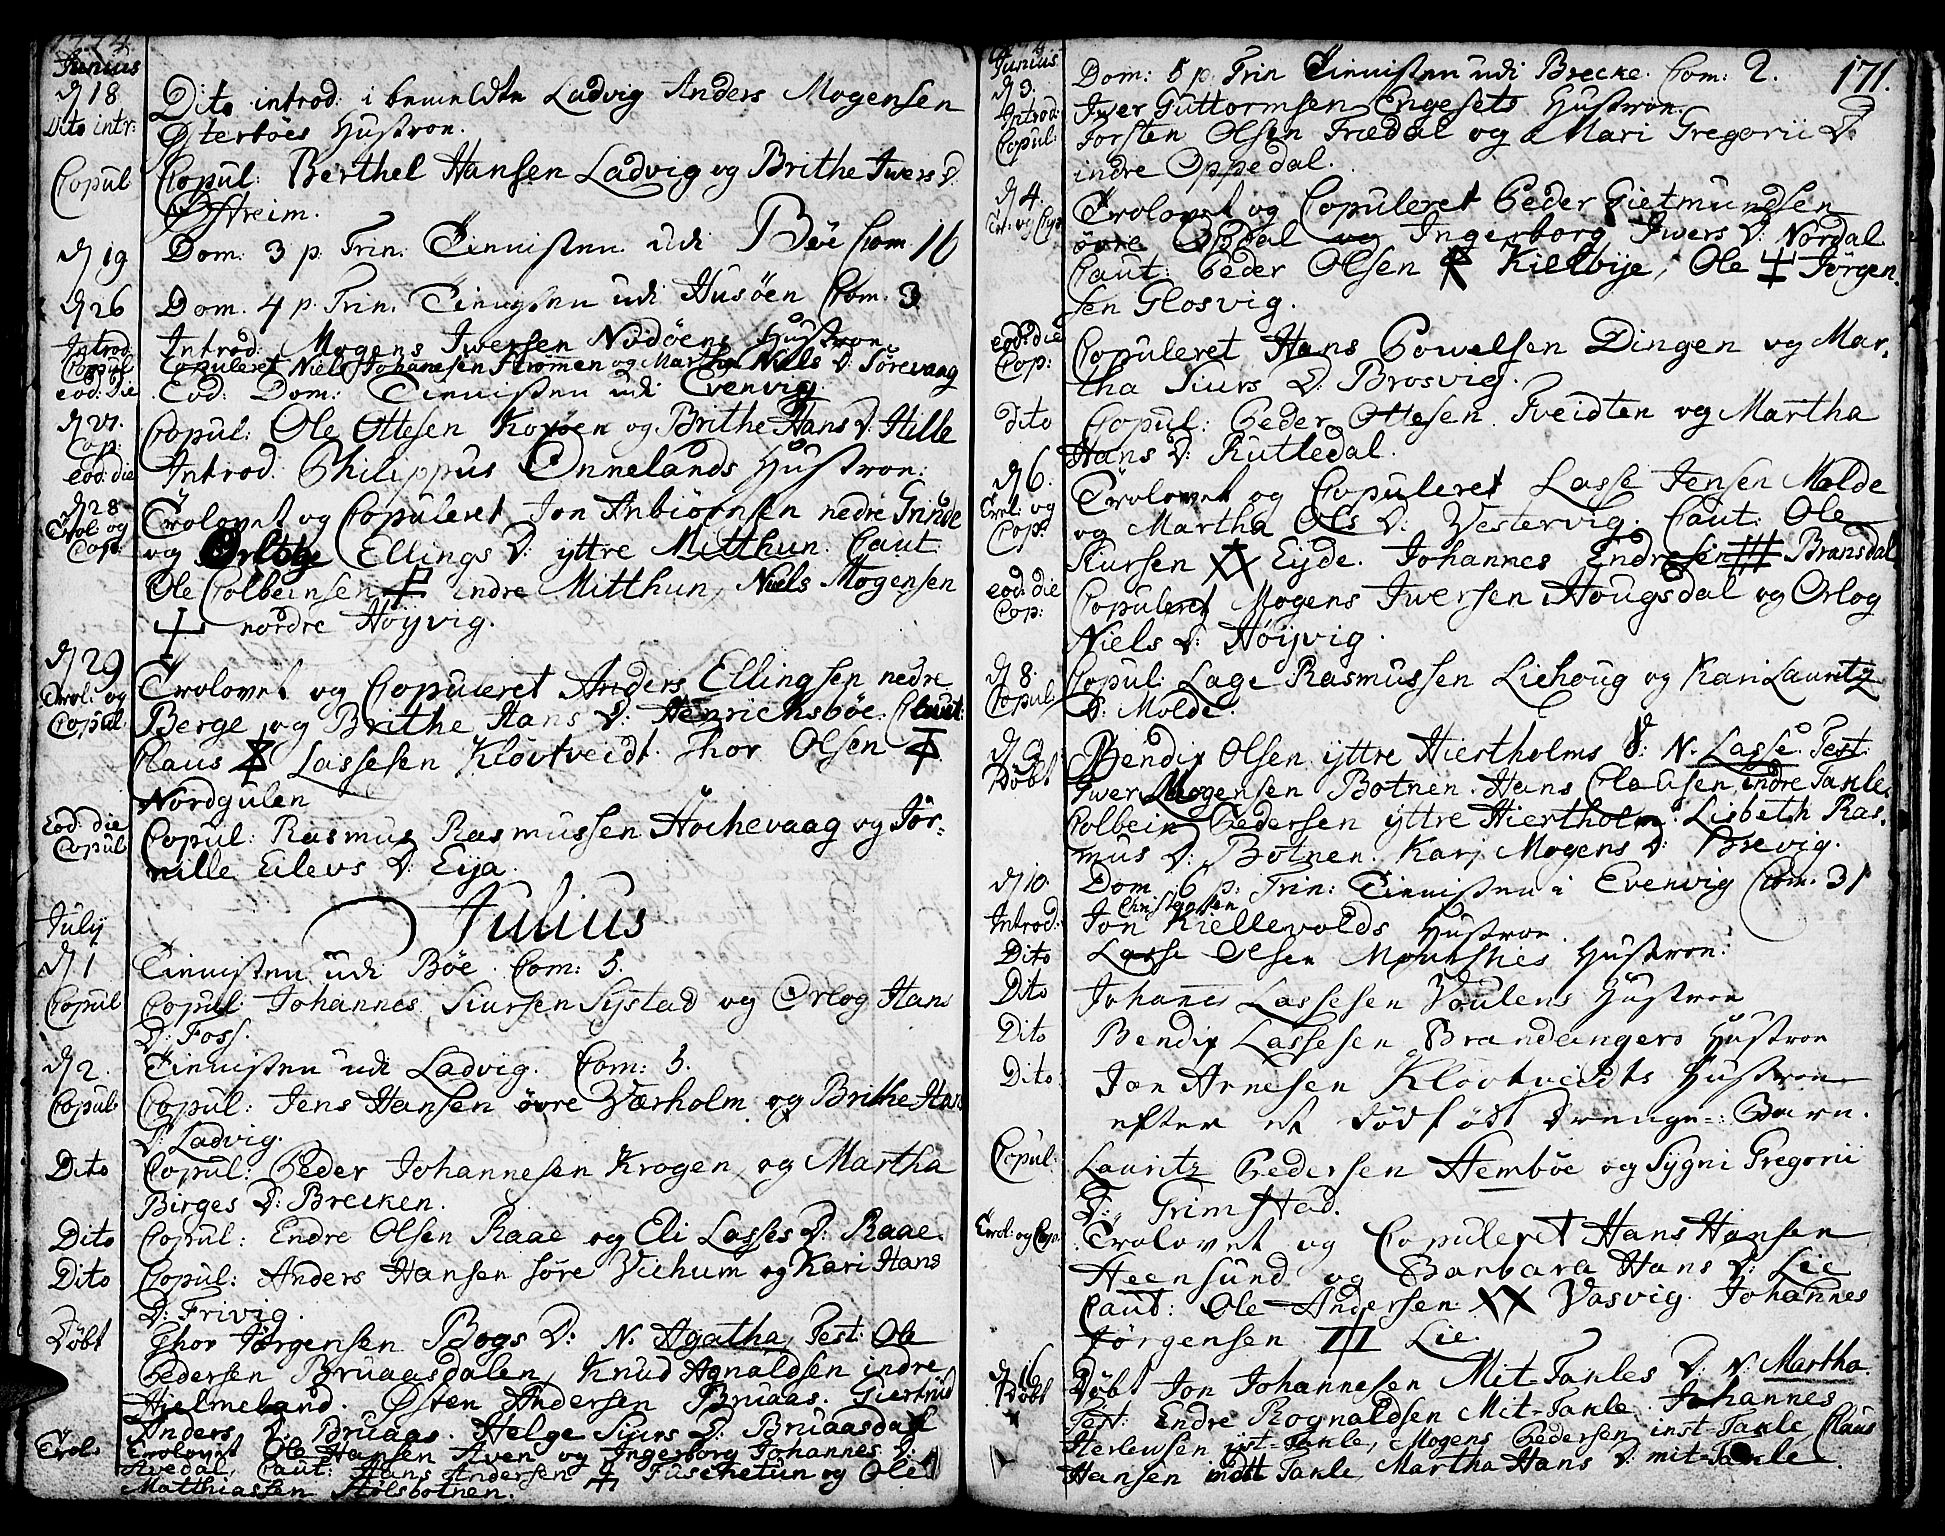 1774
Junius
d 18 Dito introd: i bemeldte Ladvig Anders Mogensen
Dito intr: Ÿterböes Hustroe.
Copul Copul: Berthel Hansen Ladvig og Brithe Iwers D:
Østreim.
d 19 Dom: 3 p: Trin: Tienisten udi Böe Com. 16
d 26 Dom. 4 p. Trin: Tienisten udi Husöen Com. 3
Introd Introd: Mogens Iwersen Nödöens Hustroe
Copul Copuleret Niels Johannesen Strömen og Martha Niels D: Sörevaag
eod: die Eod: Dom: Tienisten udi Evenvig
d 27. Cop: Copul: Ole Ottesen Kovöen og Brithe Hans D: Hille
eod: die Introd: Philippus Önnelands Hustroe:
d 28 Trolovet og Copuleret Jon Anbiörnsen nedre Grinde
Trol: og Cop: og Orloge Ellings D: yttre Mitthun. Caut:
Ole Colbeinsen indre Mitthun, Niels Mogensen
nordre Höÿvig.
d 29 Trolovet og Copuleret Anders Ellingsen nedre
Trol: og Copul: Berge og Brithe Hans D: Henrichsböe. Caut:
Claus Lassesen Klövtveidt. Thor Olsen
Nordgulen
Eod: die Copul Copul: Rasmus Rasmussen Höchevaag og Jör-
nille Eilevs D: Eÿa.
July Julius
d 1 Tienisten udi Böe. Com: 5.
Copul Copul: Johannes Siursen Sÿstad og Orlog Hans
D: Foss.
d 2. Tienisten udi Ladvig. Com: 5.
Copul Copul: Jens Hansen övre Værholm og Brithe Hans
D: Ladvig.
Dito Copul: Peder Johannesen Krogen og Martha
Birges D: Brecken.
Dito Copul: Endre Olsen Raae og Eli Lasses D: Raae
Dito Copul: Anders Hansen söre Viehum og Kari Hans
D: Frivig.
Döbt Thor Jörgensen Bogs D: N. Agatha, Test: Ole
Pedersen Bruaasdalen, Knud Agnaldsen indre
Hjelmeland. Østen Andersen Bruaas. Giertrud
Anders D: Bruaas. Helge Siurs D: Bruaasdal
Trol: Trolovet Ole Hansen Aven og Ingerborg Johannes D:
Avedal, Caut: Hans Andersen Fuschetun og Ole
Matthiassen Stölsbotnen.
Junius 171.
d 3. Dom: 5 p. Trin Tienisten udi Brecke. Com: 2.
Introd Iver Guttormsen Engesets Hustroe.
Copul: Torsten Olsen Trædal og Mari Gregorii D:
indre Oppedal.
d 4. Trolovet og Copuleret Peder Gietmundsen
Trl. og Cop övre Opdal og Ingerborg Iwers D: Nordal
Caut: Peder Olsen Kielbÿe, Ole Jörgen-
sen Glosvig.
eod: die Cop: Copuleret Hans Powelsen Dingen og Mar-
tha Siurs D: Brosvig.
Dito Copul: Peder Ottesen Tveidten og Martha
Hans D: Rutledal.
d 6. Trolovet og Copuleret Lasse Jensen Molde
Trol: og Cop: og Martha Ols D: Vestervig. Caut: Ole
Siursen XX Eÿde. Johannes Endresen Bransdal
eod: die Cop: Copuleret Mogens Iwersen Hougsdal og Orlog
Niels D: Höÿvig.
d 8. Copul Copul: Lage Rasmussen Liehoug og Kari Lauritz
D: Molde.
d 9 Döbt Bendix Olsen ÿttre Hiertholms N. Lasse. Test:
Iwer Mogensen Botnen. Hans Clausen indre Takle
Colbein Pedersen ÿttre Hiertholm. Lisbeth Ras-
mus D: Botnen. Kari Mogens D: Brevig.
d 10. Dom 6 p: Trin: Tienisten i Evenvig Com. 31
Introd: Jon Christensen Kiellevolds Hustroe.
Dito Lasse Olsen Hustroe:
Dito Johanes Lassesen Voulens Hustroe
Dito Bendix Lassesen Brandangers Hustroe
Dito Jon Arnesen Klövtveidts Hustroe
efter et dödfödt Drenge-Barn.
Copul: Lauritz Pedersen Hemböe og Sÿgni Gregorii
D: Grimstad.
Trol: og Cop. Trolovet og Copuleret Hans Hansen
Steensund og Barbara Hans D: Lie
Caut: Ole Andersen XX Vasvig. Johannes
Jörgensen Lie.
d 16 Döbt Döbt Jon Johannesen Mit-Takles D: N: Martha
Test: Endre Rognaldsen Mit-Takle. Johannes
Herlewsen inst-Takle, Mogens Pedersen inst-Takle, Claus
Hansen indst Takle, Martha Hans D: mit-Takle.